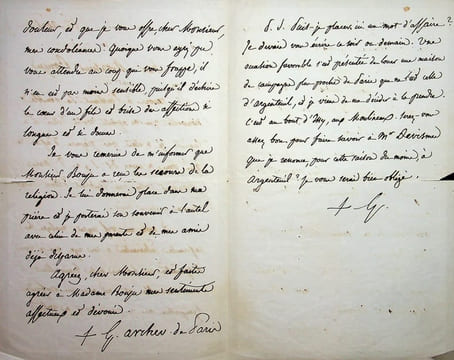 douleur, et que je vous offre, cher Monsieur,
mes condoléances. Quoique vous
vous attendre au coup qui vous frappe, il
n'en est pas moins sensible, puisqu'il déchire
le cœur d'un fils et brise des affections si
longues et si douces.
Je vous remercie de m'informer que
Monsieur Bouju a reçu les secours de la
religion. Je lui donnerai place dans ma
prière et je porterai son souvenir à l'autel
avec celui de mes parents et de mes amis
déjà
Agréez, cher Monsieur, et faites
agréer à Madame Bouju mes sentiments
affectueux et dévoués.
+ G. archev. de Paris
P. S. Puis-je placer ici un mot d'affaire?
Je devais vous écrire ce soir ou demain. Une
occasion favorable s'est présentée de louer une maison
de campagne plus proche de Paris que ne l'est celle
d'Argenteuil, et je viens de me décider à la prendre.
C'est au bout d'Issy, aux Moulineaux. Serez-vous
assez bon pour faire savoir à Mr
que je renonce, pour cette raison du moins, à
Argenteuil? Je vous serai bien obligé.
+ G.